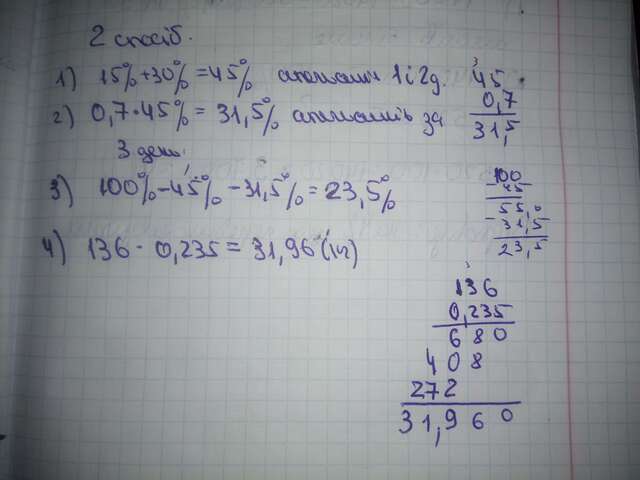 2 спосіб.
1) 15% + 30% = 45% апельсини 1 і 2 д.
2) 0,7 · 45% = 31,5% апельсинів за
3 день
3) 100% - 45% - 31,5% = 23,5%
4) 136 · 0,235 = 31,96 (кг)
3
45
0,7
31,5
100
45
55,0
31,5
23,5
3
136
0,235
680
408
272
31,960